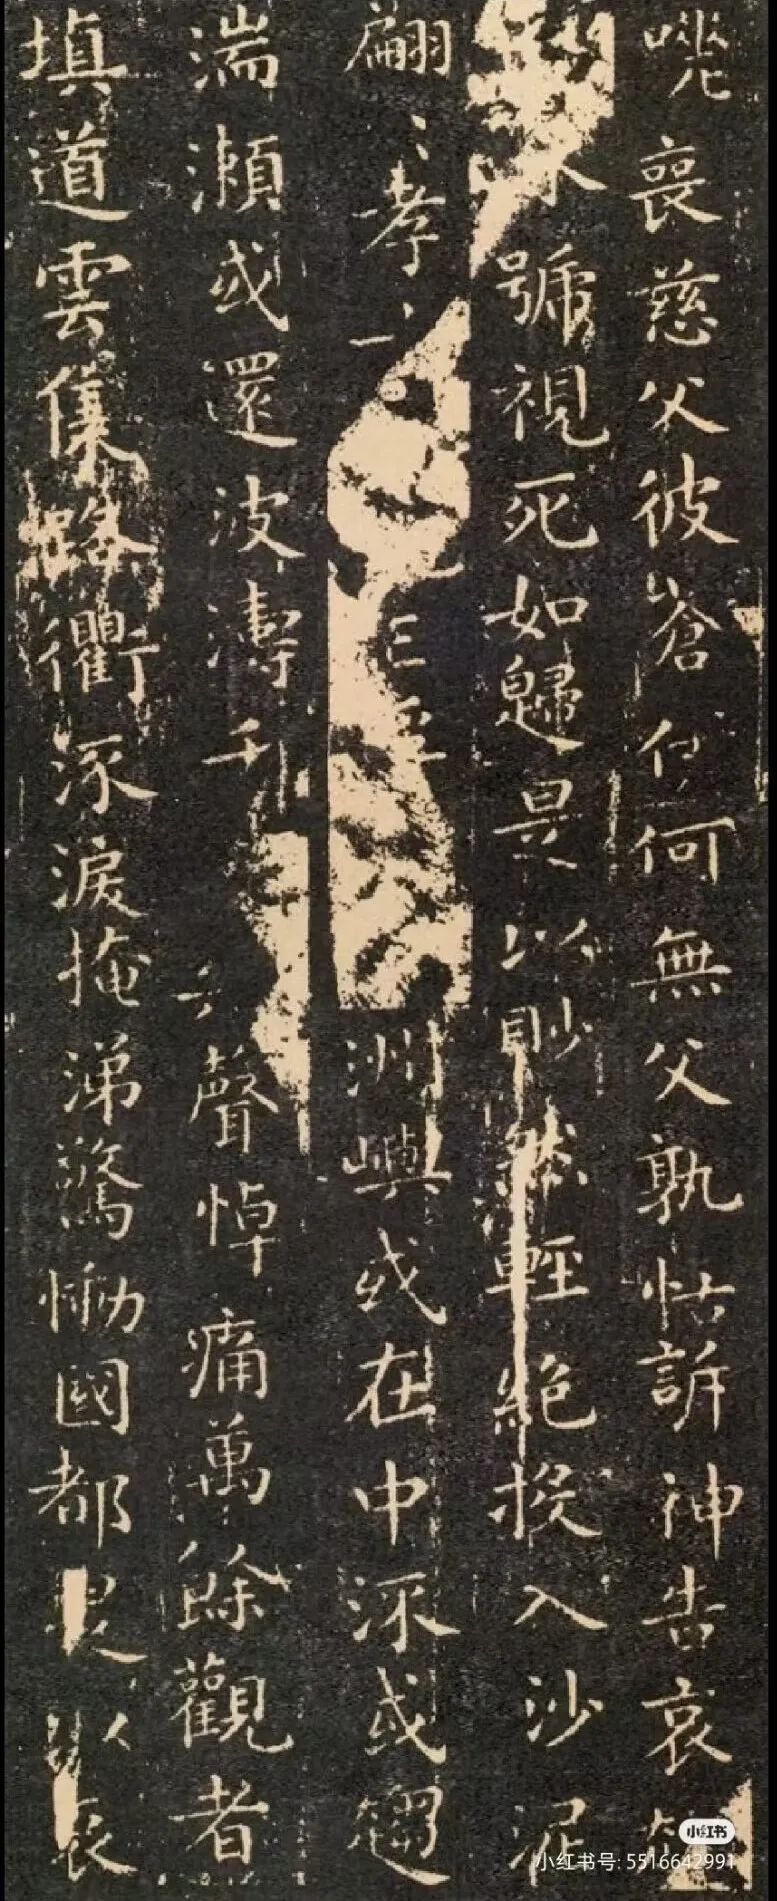 喪慈父彼蒼伊何無父孰怙訴神告哀
號視死如歸是以眇然輕絕投入沙泥
翩〻孝 洲嶼或在中流或趨
湍瀨或還波濤千 聲悼痛萬餘觀者
填道雲集路衢流淚掩涕驚慟國都是以哀
小红书
小红书号: 5516642991